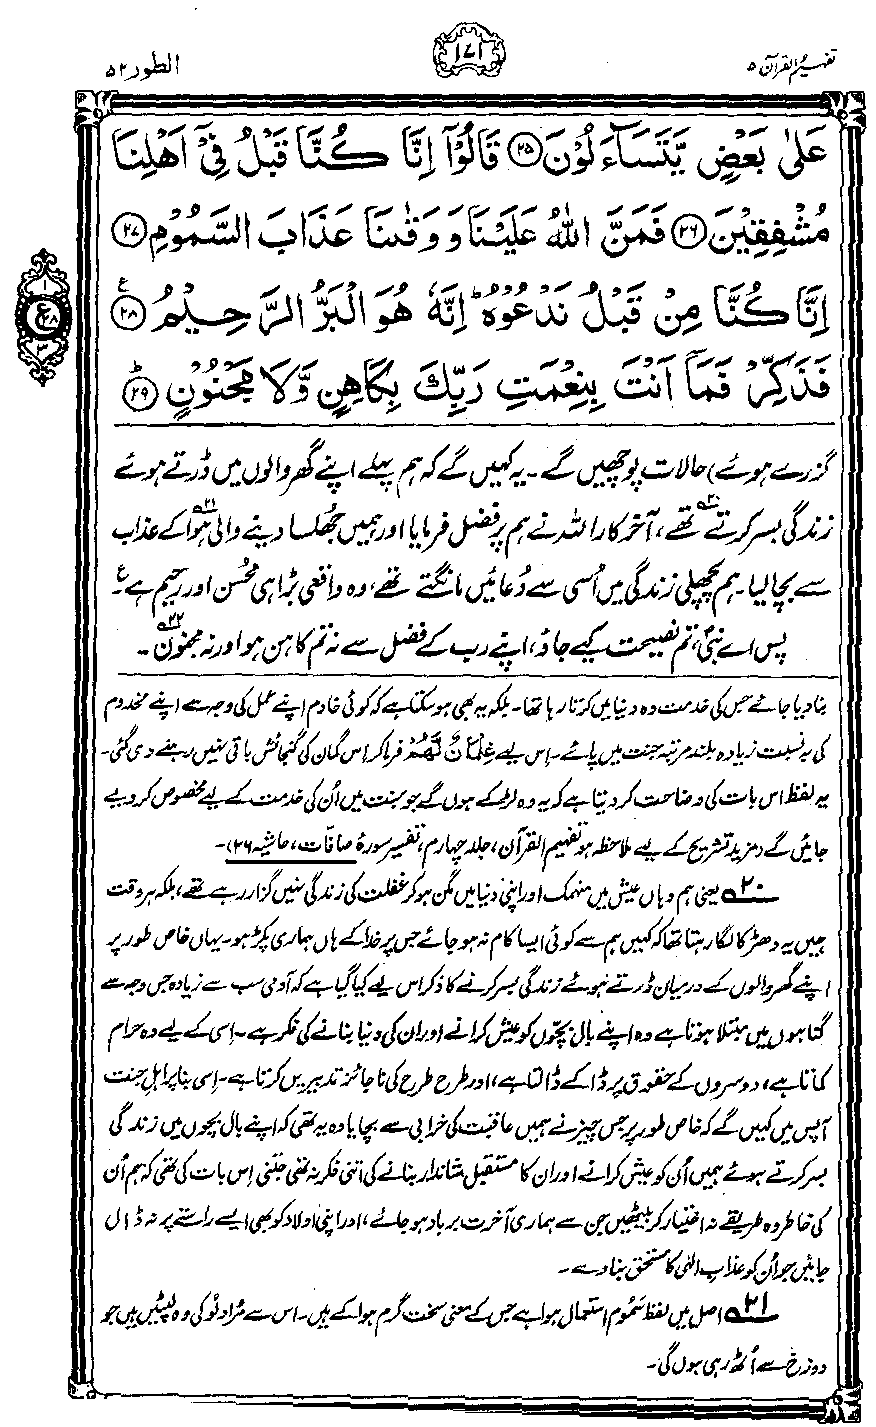 تفہیم القرآن ۵
۱۷۱
الطور ۵۲
عَلٰی بَعْضٍ یَّتَسَآءَلُوْنَ ﴿۲۵﴾ قَالُوْۤا اِنَّا كُنَّا قَبْلُ فِیْۤ اَهْلِنَا
مُشْفِقِیْنَ ﴿۲۶﴾ فَمَنَّ اللّٰهُ عَلَیْنَا وَ وَقٰىنَا عَذَابَ السَّمُوْمِ ﴿۲۷﴾
اِنَّا كُنَّا مِنْ قَبْلُ نَدْعُوْهُ ؕ اِنَّهٗ هُوَ الْبَرُّ الرَّحِیْمُ ﴿۲۸﴾ ع
فَذَكِّرْ فَمَاۤ اَنْتَ بِنِعْمَتِ رَبِّكَ بِكَاهِنٍ وَّ لَا مَجْنُوْنٍ ﴿۲۹﴾ؕ
۱
ع ۲۸
۳
گزرے ہوئے) حالات پوچھیں گے۔ یہ کہیں گے کہ ہم پہلے اپنے گھر والوں میں ڈرتے ہوئے
زندگی بسر کرتے تھے۲۰، آخر کار اللہ نے ہم پر فضل فرمایا اور ہمیں جھلسا دینے والی ہوا۲۱ کے عذاب
سے بچا لیا۔ ہم پچھلی زندگی میں اُسی سے دُعائیں مانگتے تھے، وہ واقعی بڑا ہی محسن اور رحیم ہے۔ ع
پس اے نبیؐ، تم نصیحت کیے جاؤ، اپنے رب کے فضل سے نہ تم کاہن ہو اور نہ مجنون۲۲۔
بنا دیا جائے جس کی خدمت وہ دنیا میں کرتا رہا تھا۔ بلکہ یہ بھی ہو سکتا ہے کہ کوئی خادم اپنے عمل کی وجہ سے اپنے مخدوم
کی بہ نسبت زیادہ بلند مرتبہ جنت میں پائے۔ اس لیے غِلْمَانٌ لَّهُمْ فرما کر اس گمان کی گنجائش باقی نہیں رہنے دی گئی۔
یہ لفظ اس بات کی وضاحت کر دیتا ہے کہ یہ وہ لڑکے ہوں گے جو جنت میں اُن کی خدمت کے لیے مخصوص کر دیے
جائیں گے (مزید تشریح کے لیے ملاحظہ ہو تفہیم القرآن، جلد چہارم، تفسیر سورۂ صافات، حاشیہ ۲۶)۔
۲۰ یعنی ہم وہاں عیش میں منہمک اور اپنی دنیا میں مگن ہو کر غفلت کی زندگی نہیں گزار رہے تھے، بلکہ ہر وقت
ہمیں یہ دھڑکا لگا رہتا تھا کہ کہیں ہم سے کوئی ایسا کام نہ ہو جائے جس پر خدا کے ہاں ہماری پکڑ ہو۔ یہاں خاص طور پر
اپنے گھر والوں کے درمیان ڈرتے ہوئے زندگی بسر کرنے کا ذکر اس لیے کیا گیا ہے کہ آدمی سب سے زیادہ جس وجہ سے
گناہوں میں مبتلا ہوتا ہے وہ اپنے بال بچوں کو عیش کرانے اور ان کی دنیا بنانے کی فکر ہے۔ اسی کے لیے وہ حرام
کماتا ہے، دوسروں کے حقوق پر ڈاکے ڈالتا ہے، اور طرح طرح کی ناجائز تدبیریں کرتا ہے۔ اِسی بنا پر اہلِ جنت
آپس میں کہیں گے کہ خاص طور پر جس چیز نے ہمیں عاقبت کی خرابی سے بچایا وہ یہ تھی کہ اپنے بال بچوں میں زندگی
بسر کرتے ہوئے ہمیں اُن کو عیش کرانے اور ان کا مستقبل شاندار بنانے کی اتنی فکر نہ تھی جتنی اِس بات کی تھی کہ ہم اُن
کی خاطر وہ طریقے نہ اختیار کر بیٹھیں جن سے ہماری آخرت برباد ہو جائے، اور اپنی اولاد کو بھی ایسے راستے پر نہ ڈال
جائیں جو اُن کو عذابِ الٰہی کا مستحق بنا دے۔
۲۱ اصل میں لفظ سَمُوم استعمال ہوا ہے جس کے معنی سخت گرم ہوا کے ہیں۔ اس سے مُراد لُو کی وہ لپٹیں ہیں جو
دوزخ سے اُٹھ رہی ہوں گی۔